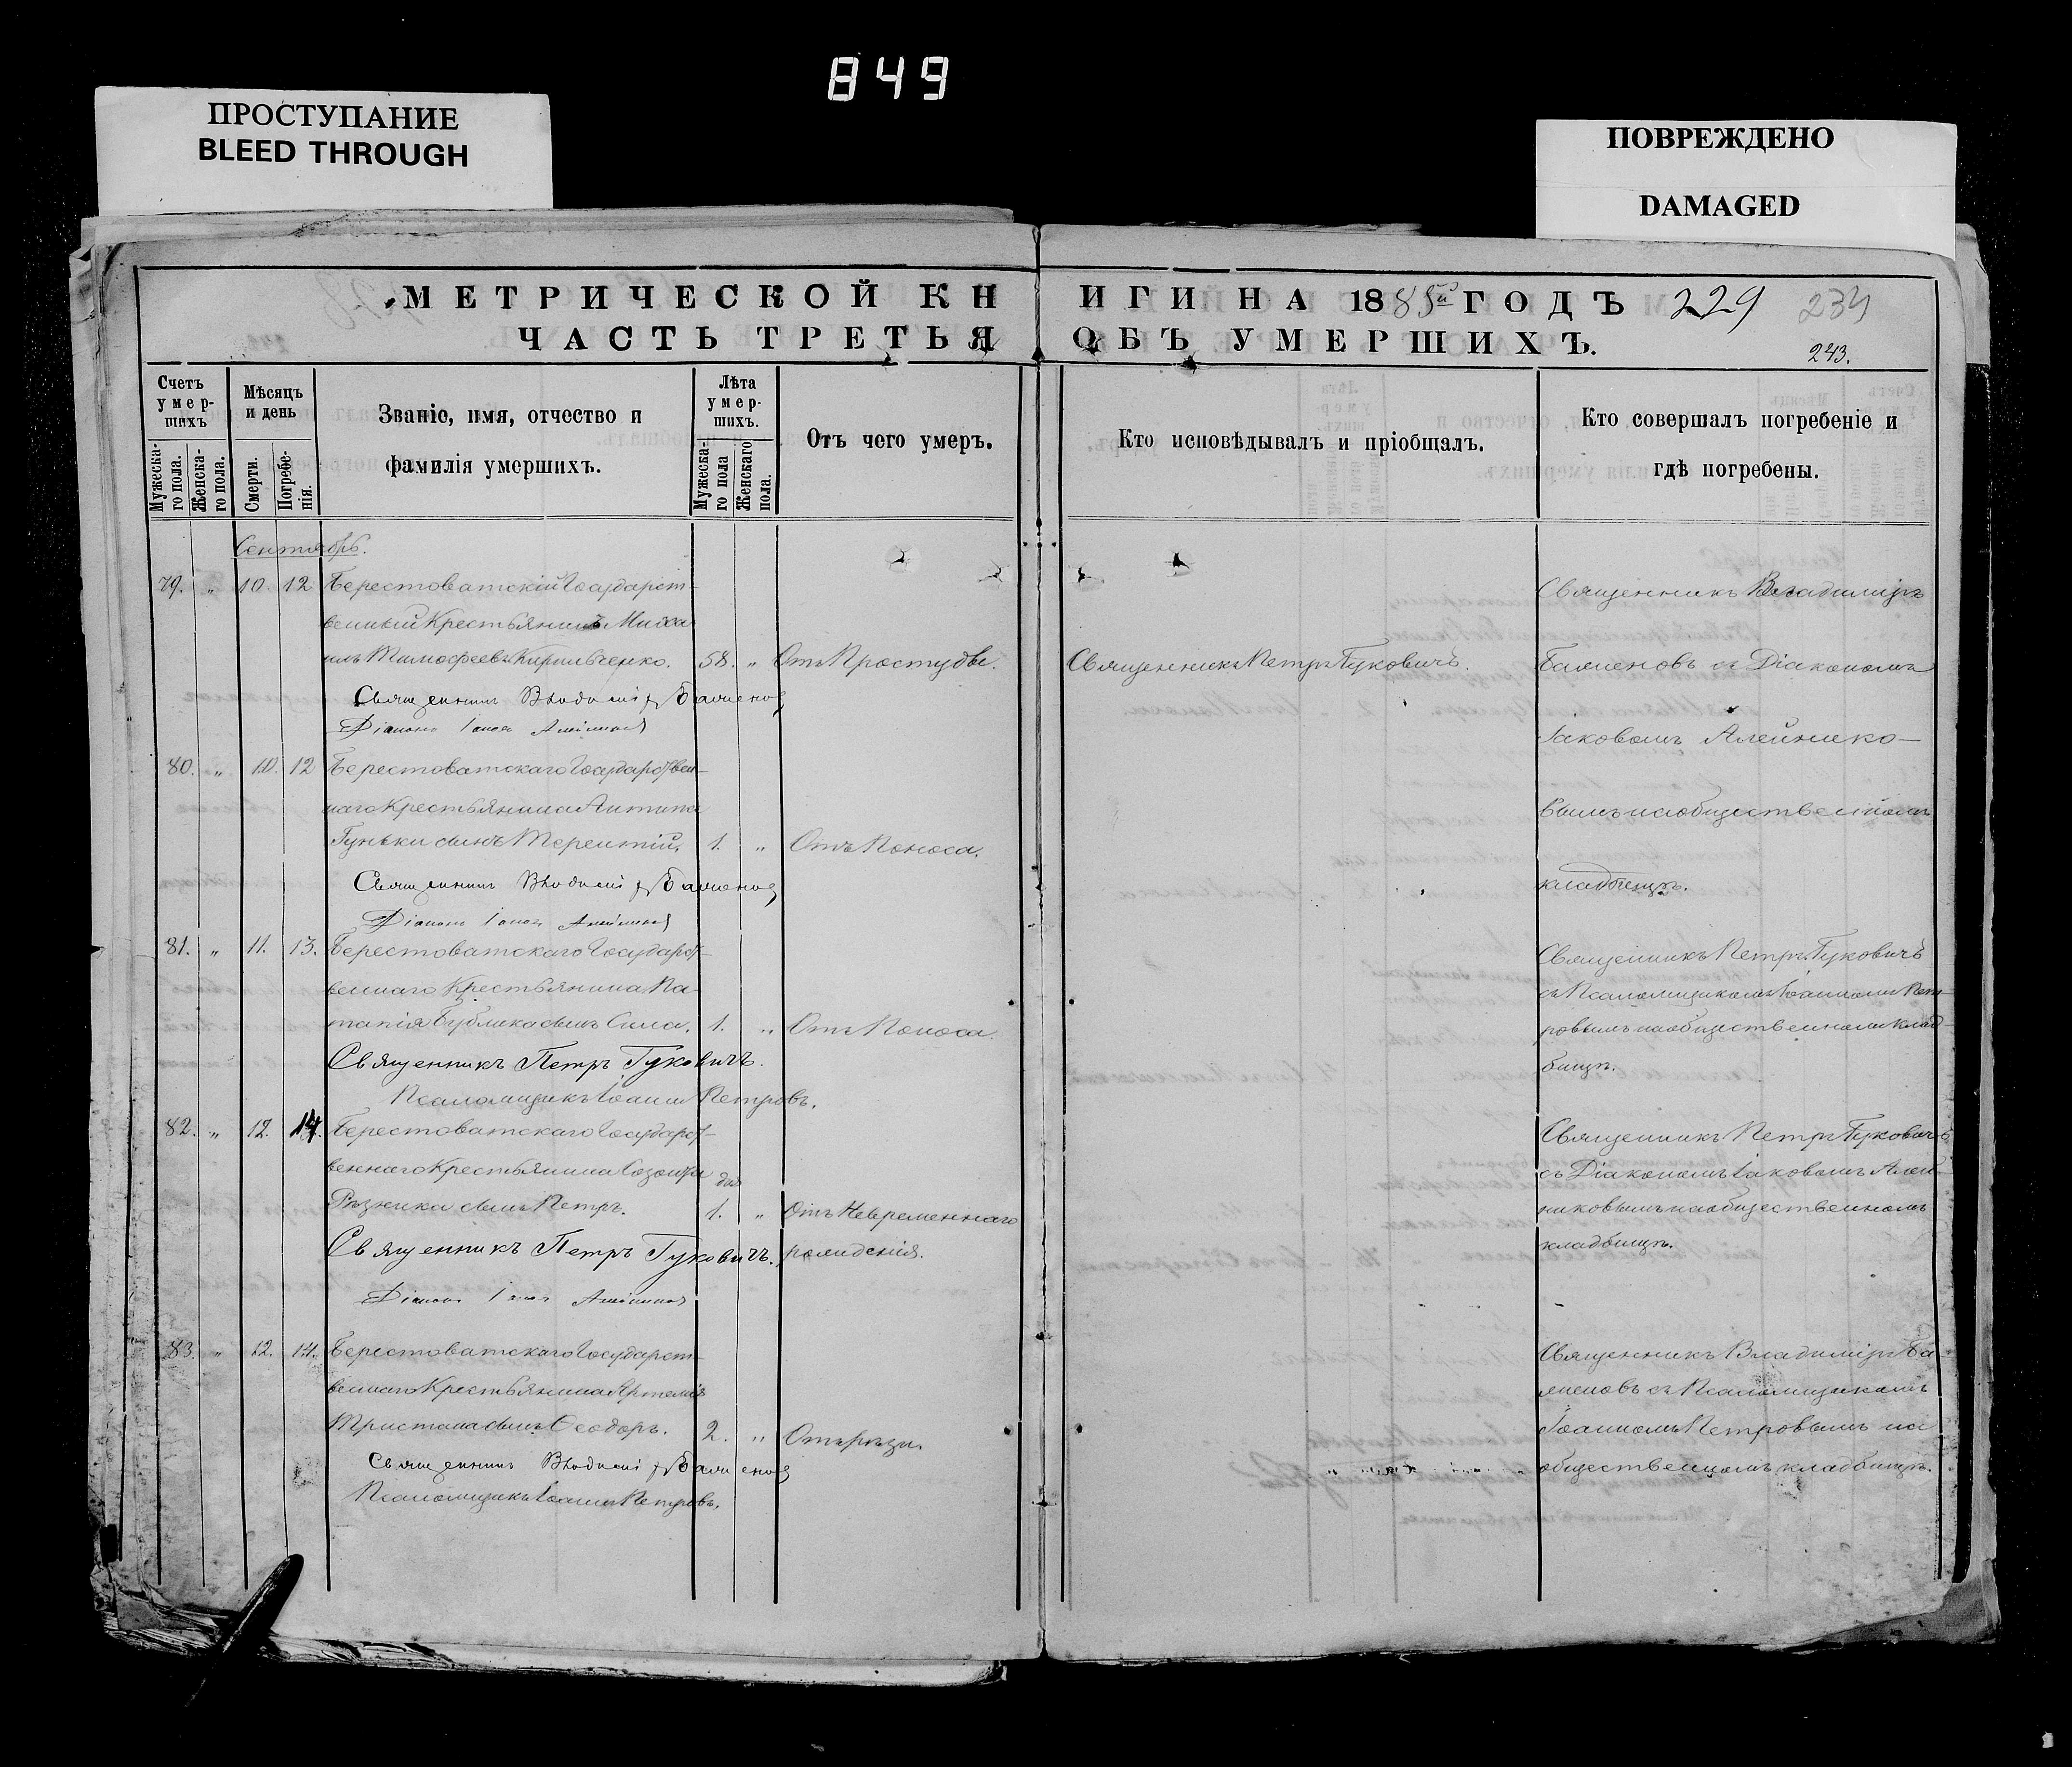 849
ПРОСТУПАНИЕ
BLEED THROUGH
ПОВРЕЖДЕНО
DAMAGED
МЕТРИЧЕСКОЙ КНИГИ НА 1885й ГОДЪ 229 234
ЧАСТЬ ТРЕТЬЯ ОБЪ УМЕРШИХЪ.
243.
Счетъ умер-шихъ
Мужеска-го пола.
Женска-го пола.
Мѣсяцъ и день
Смерти.
Погребе-нія.
Званіе, имя, отчество и
фамилія умершихъ.
Лѣта умер-шихъ.
Мужеска-го пола
Женскаго пола.
Отъ чего умеръ.
Кто исповѣдывалъ и пріобщалъ.
Кто совершалъ погребеніе и
гдѣ погребены.
Сентябрь.
79. " 10. 12 Берестоватскій Государст-
венный Крестьянинъ Миха
илъ Тимофеевъ Кирильченко. 58. " Отъ Простуды.
Священникъ Петръ Гуковичъ.
Священникъ Владиміръ
Баженовъ съ Діакономъ
Іаковомъ Алейнико-
вымъ на общественномъ
кладбищѣ.
Священникъ Владиміръ Баженовъ
Діаконъ Іаковъ Алейниковъ
80. " 10. 12 Берестоватскаго Государствен-
наго Крестьянина Антипа
Гуньки сынъ Терентій. 1. " Отъ Поноса.
Священникъ Владиміръ Баженовъ
Діаконъ Іаковъ Алейниковъ
81. " 11. 13. Берестоватскаго Государст-
веннаго Крестьянина Па-
тапія Бублика сынъ Сила. 1. " Отъ Поноса.
Священникъ Петръ Гуковичъ.
Псаломщикъ Іоаннъ Петровъ.
Священникъ Петръ Гуковичъ
съ Псаломщикомъ Іоанномъ Пет-
ровымъ на общественномъ клад-
бищѣ.
82. " 12. 14. Берестоватскаго Государст-
веннаго Крестьянина Созонта
дня
Рѣзника сынъ Петръ. 1. " Отъ Невременнаго
рожденія.
Священникъ Петръ Гуковичъ.
Діаконъ Іаковъ Алейниковъ
Священникъ Петръ Гуковичъ
съ Діакономъ Іаковомъ Алей-
никовымъ на общественномъ
кладбищѣ.
83. " 12. 14. Берестоватскаго Государст-
веннаго Крестьянина Артемія
Тристана сынъ Ѳеодоръ. 2. " Отъ рѣзи.
Священникъ Владиміръ Баженовъ
Псаломщикъ Іоаннъ Петровъ.
Священникъ Владиміръ Ба
женовъ съ Псаломщикомъ
Іоанномъ Петровымъ на
общественномъ кладбищѣ.